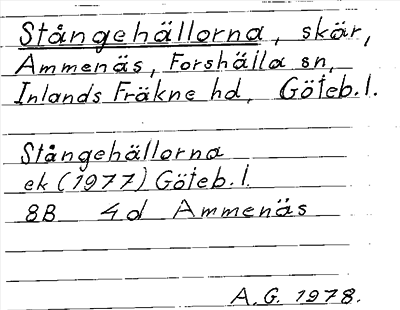 Stångehällorna, skär,
Ammenäs, Forshälla sn,
Inlands Fräkne hd, Göteb. l.
Stångehällorna
ek (1977) Göteb. l.
8B 4d Ammenäs
A. G. 1978.